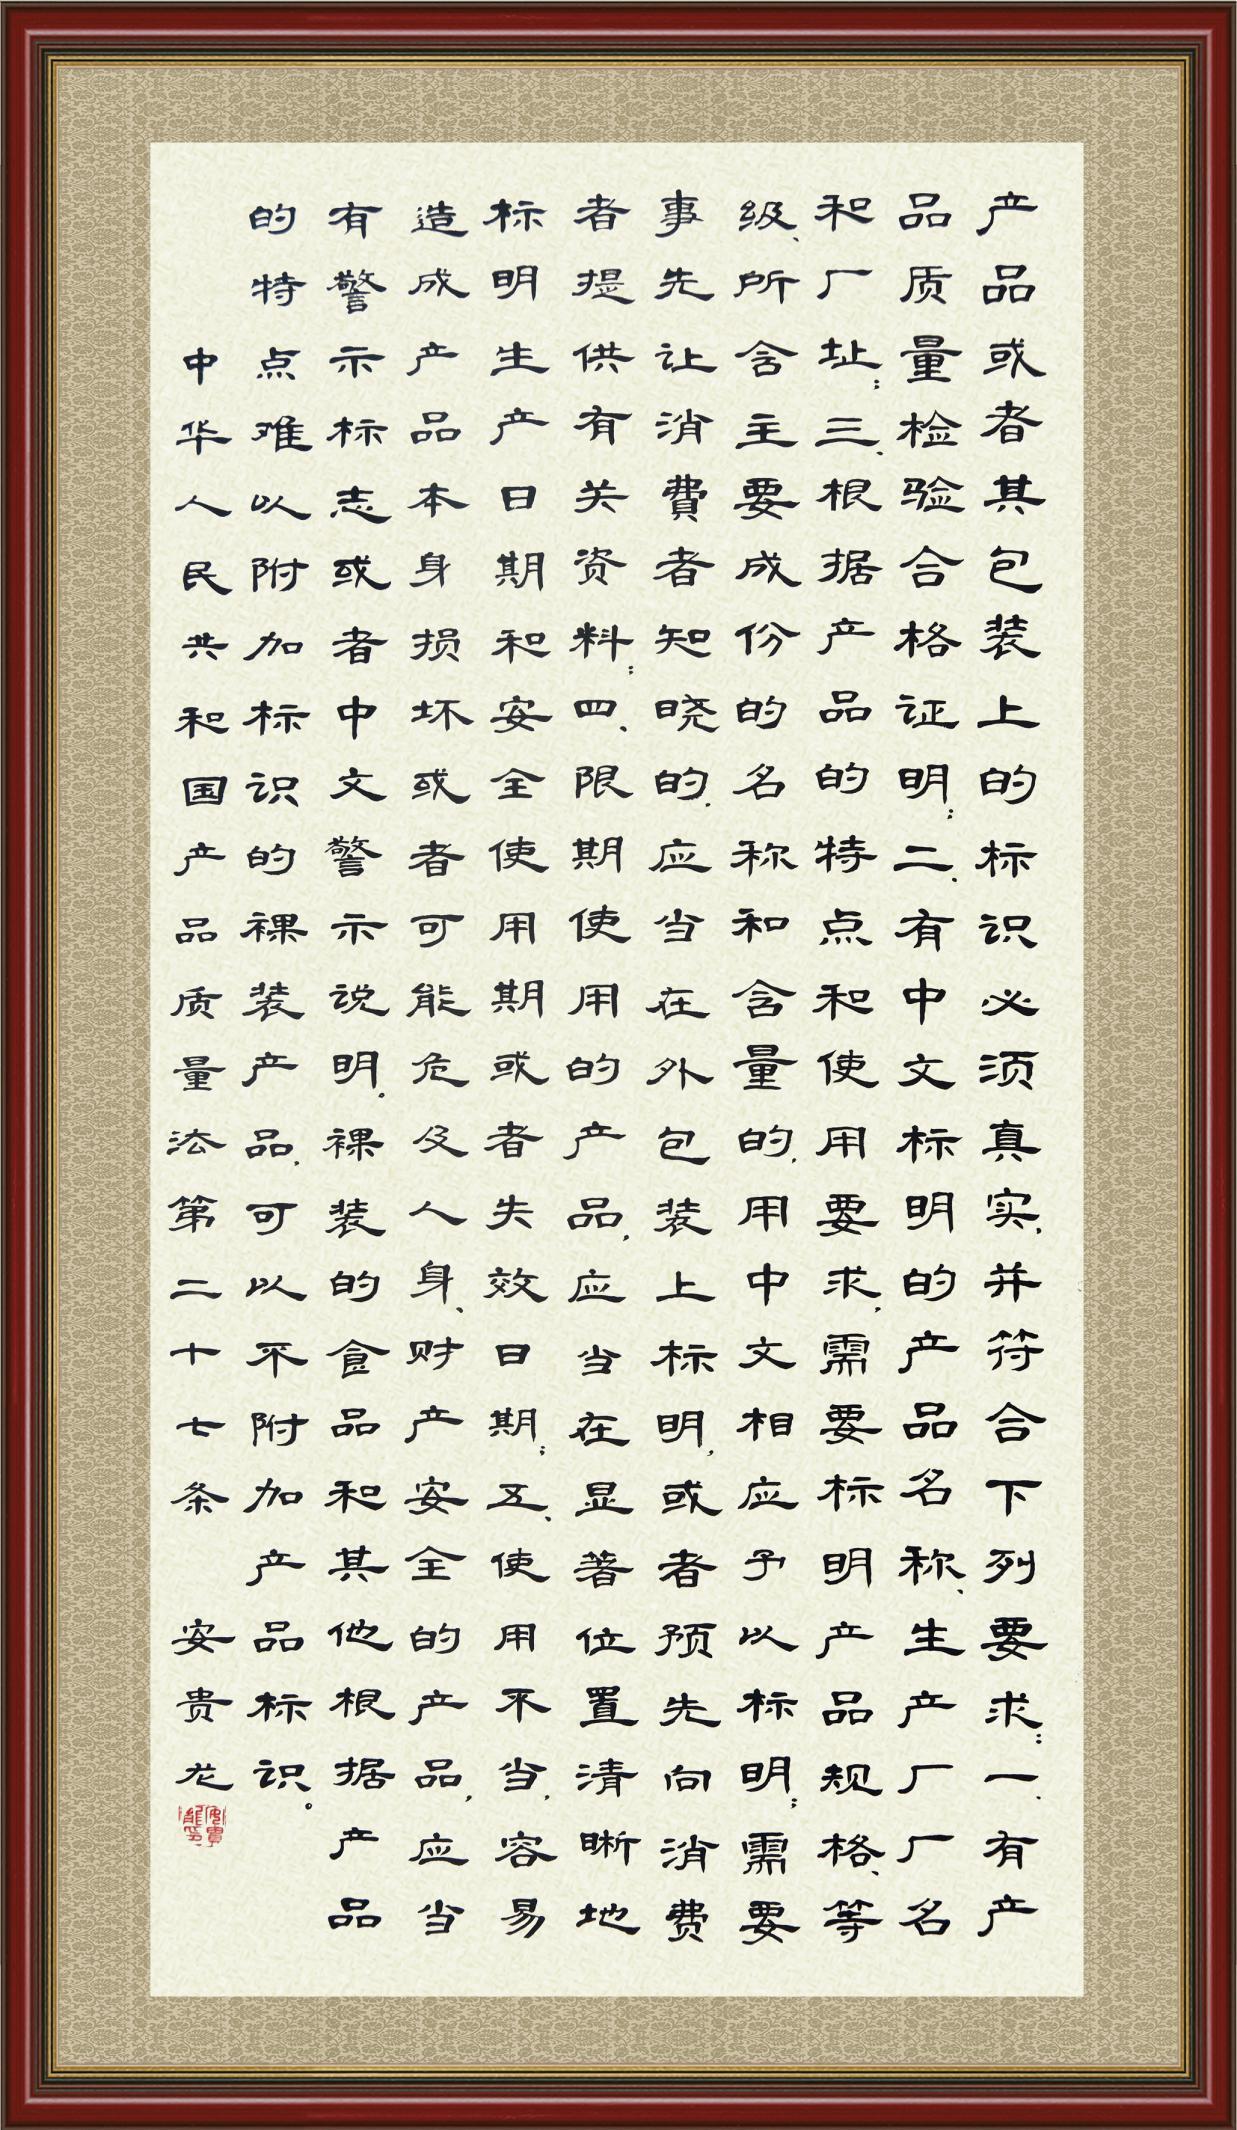 产品或者其包装上的标识必须真实，并符合下列要求：一、有产
品质量检验合格证明；二、有中文标明的产品名称、生产厂厂名
和厂址；三、根据产品的特点和使用要求，需要标明产品规格、等
级、所含主要成份的名称和含量的，用中文相应予以标明；需要
事先让消费者知晓的，应当在外包装上标明，或者预先向消费
者提供有关资料；四、限期使用的产品，应当在显著位置清晰地
标明生产日期和安全使用期或者失效日期；五、使用不当，容易
造成产品本身损坏或者可能危及人身、财产安全的产品，应当
有警示标志或者中文警示说明。裸装的食品和其他根据产品
的特点难以附加标识的裸装产品，可以不附加产品标识。
中华人民共和国产品质量法第二十七条 安贵龙
安貴龍印